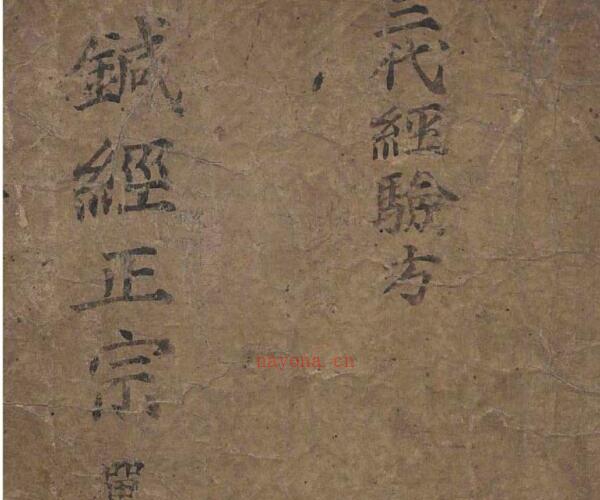 三代經驗方
鍼經正宗 單
nayona.cn